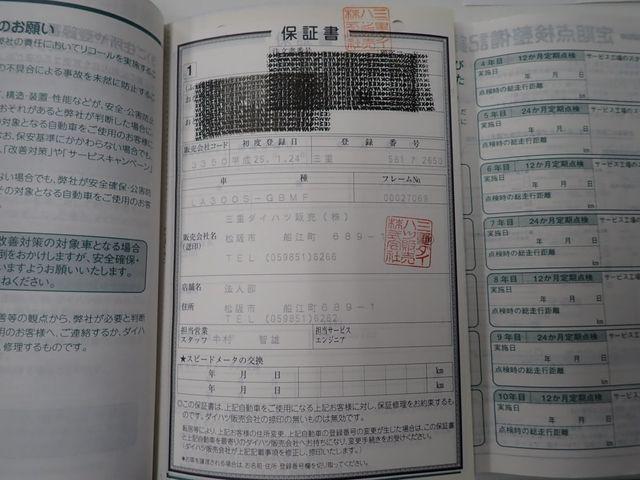 のお願い
弊社の責任においてリコールを実施するこ
の不具合による事故を未然に防止するこ
、構造・装置・性能などが、安全・公害防止
おそれがあると弊社が判断した場合に
の対象となる自動車をご使用のお客様に
なお、保安基準にかかわらない場合でも、
、「改善対策」や「サービスキャンペーン」
ない場合でも、弊社が安全確保・公害防
その対象となる自動車をご使用のお客
改善対策の対象車となる場合
倒をおかけしますが、安全確保・
いますようお願いいたします。
ねください。
善等の観点から、弊社が必要と判断
用のお客様へ、ご連絡するか、ダイハ
、修理するものです。
保証書
1
販売会社コード
初度登録日
登録番号
9350
平成25.1.24
三重
581 ア 2650
車種
フレームNo.
LA300S-GBMF
00027069
三重ダイハツ販売(株)
販売会社名
(認印)
松阪市 船江町 689-1
TEL (059851)6266
店舗名
法人部
住所
松阪市 船江町689-1
TEL (059851)6262
担当営業
スタッフ
智雄
担当サービス
エンジニア
★スピードメータの交換
年 月 日 km
年 月 日 km
◎この保証書は、上記自動車をご使用になる上記お客様に対し、保証修理をお約束するも
のです。ダイハツ販売会社の捺印の無いものは無効です。
転居等により、上記お客様の住所変更、上記自動車の登録番号の変更が生じた場合は、この保証書
と上記自動車を最寄りのダイハツ販売会社へお持ちになり、変更手続きをお受けください。
(ダイハツ販売会社が上記記載事項を修正し、捺印いたします。)
定期点検整備記
4年目 12か月定期点検
実施日 年 月 日
点検時の総走行距離
km
5年目 24か月定期点検
実施日 年 月 日
点検時の総走行距離
km
6年目 12か月定期点検
実施日 年 月 日
点検時の総走行距離
km
7年目 24か月定期点検
実施日 年 月 日
点検時の総走行距離
km
8年目 12か月定期点検
実施日 年 月 日
点検時の総走行距離
km
9年目 24か月定期点検
実施日 年 月 日
点検時の総走行距離
km
10年目 12か月定期点検
実施日 年 月 日
点検時の総走行距離